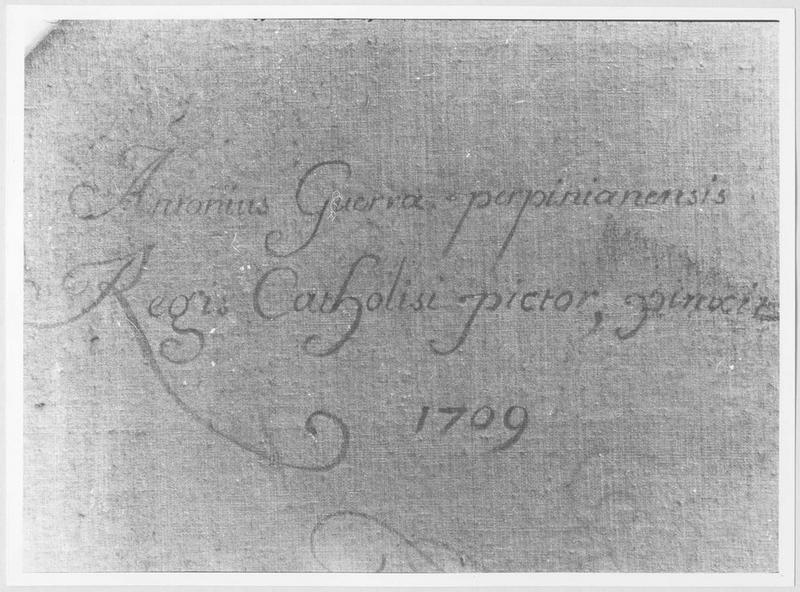 Antonius Guerra perpinianensis
Regis Catholisi pictor, pinxit
1709